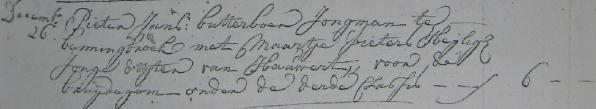 Decemb: Pieter Jans: butterboer Jongman te
26: benningbroek met Maartje Pieters Heijlig
Jonge dogter van Hauwert, voor de
bruijdegom onder de derde Classis - - f 6 - -